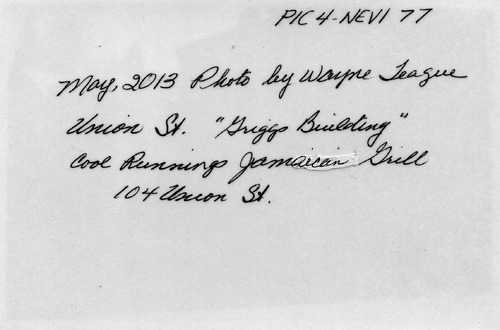 PIC 4-NEVI 77
May, 2013 Photo by Wayne Teague
Union St. "Griggs Building"
Cool Runnings Jamaican Grill
104 Union St.